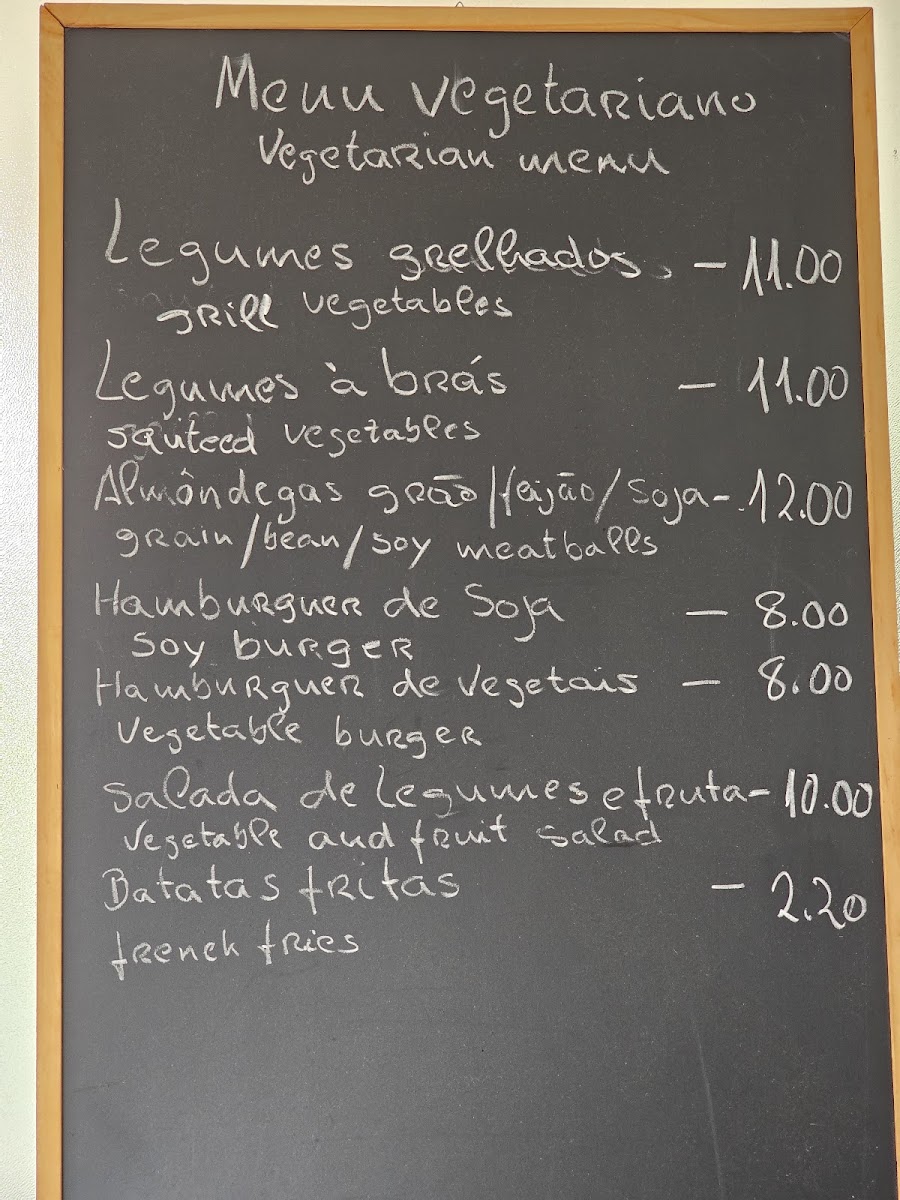 Menu vegetariano
Vegetarian menu
Legumes grelhados. - 11.00
grill vegetables
Legumes à brás - 11.00
sauteed vegetables
Almôndegas grão/feijão/soja - 12.00
grain/bean/soy meatballs
Hamburguer de Soja - 8.00
soy burger
Hamburguer de vegetais - 8.00
vegetable burger
salada de legumes e fruta - 10.00
vegetable and fruit salad
Batatas fritas - 2.20
french fries